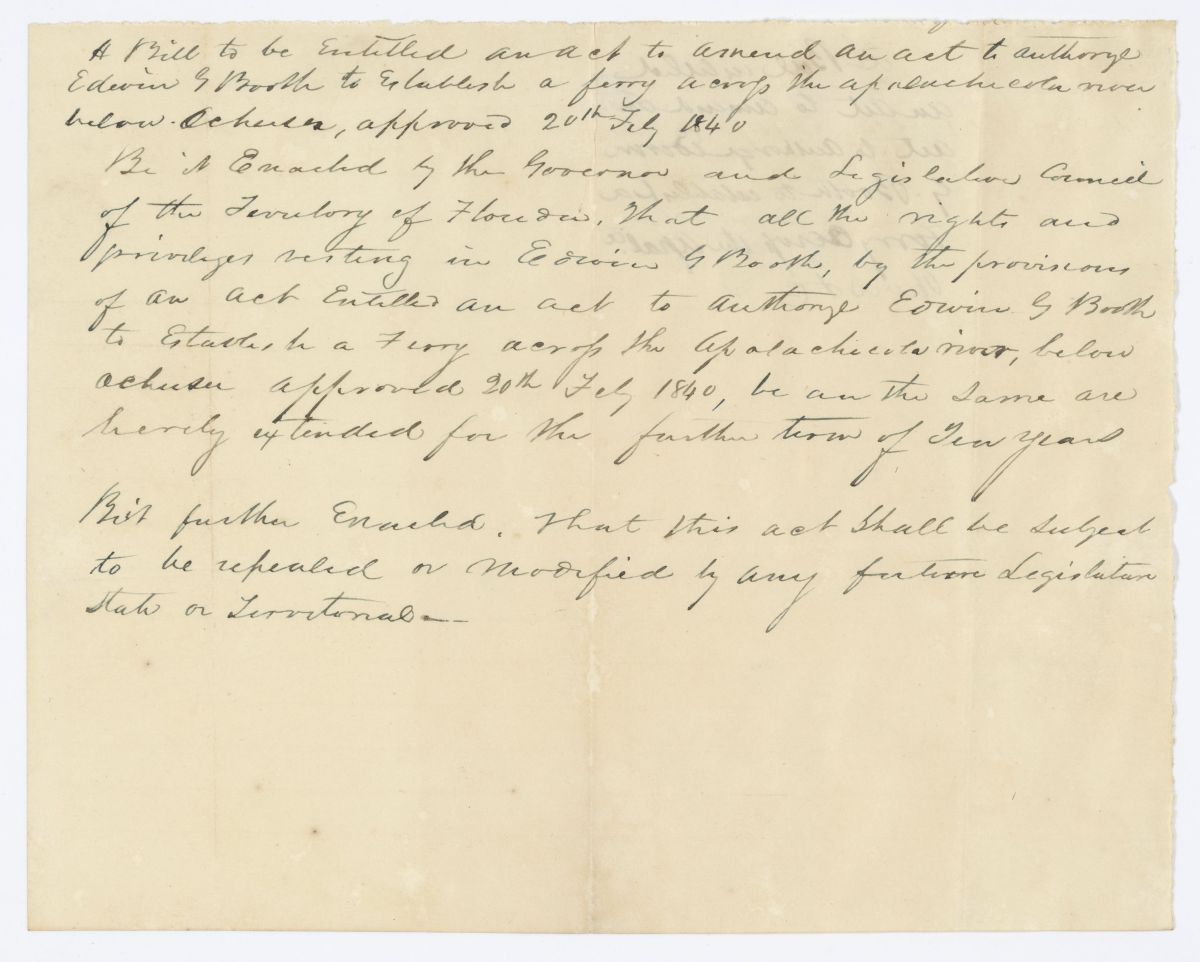 A Bill to be Entitled an act to amend an act to authorize
Edwin G Booth to Establish a ferry across the apalachicola river
below Ochesee, approved 20th Feby 1840
Be it Enacted by the Governor and Legislative Council
of the Territory of Florida, That all the rights and
privileges vesting in Edwin G Booth, by the provisions
of an act Entitled an act to authorize Edwin G Booth
to Establish a Ferry across the Apalachicola river, below
ochesee approved 20th Feby 1840, be an the same are
hereby extended for the further term of Ten years
Be it further Enacted. That this act shall be subject
to be repealed or modified by any future Legislature
State or Territorial—